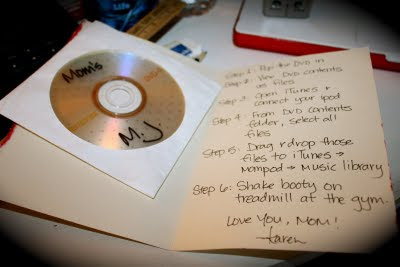 Mom's
M.J
Step 1: Pop the DVD in
Step 2: View DVD contents
as files
Step 3: Open iTunes +
connect your ipod
Step 4: From DVD contents
folder, select all
files
Step 5: Drag + drop those
files to iTunes →
Mompod → Music library
Step 6: Shake booty on
treadmill at the gym.
LOVE YOU, MOM!
Karen